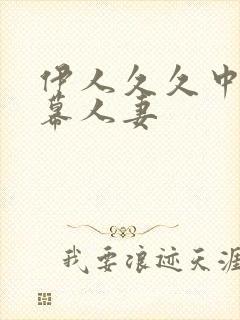 伊人久久中
幕人妻
我要浪迹天涯